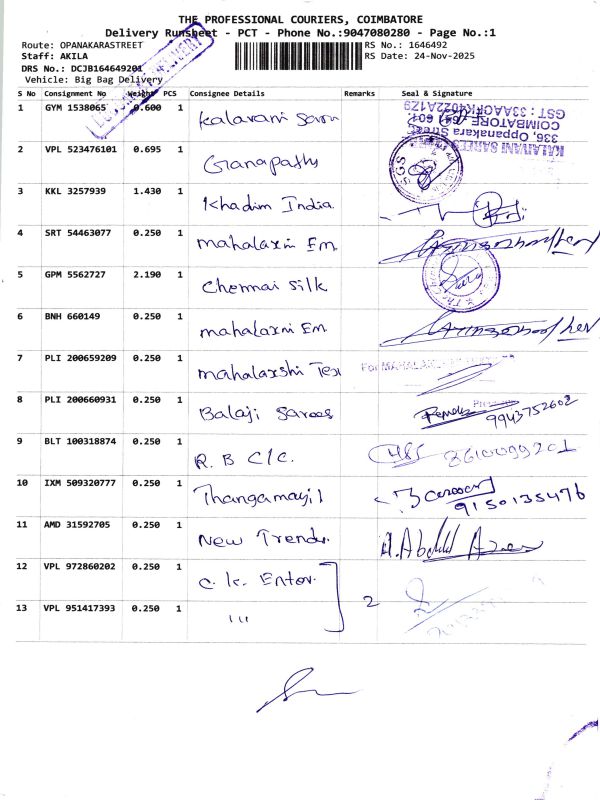 THE PROFESSIONAL COURIERS, COIMBATORE
Delivery Runsheet - PCT - Phone No.:9047080280 - Page No.:1
Route: OPANAKARASTREET RS No.: 1646492
Staff: AKILA RS Date: 24-Nov-2025
DRS No.: DCJB164649201
Vehicle: Big Bag Delivery
S No Consignment No Weight PCS Consignee Details Remarks Seal & Signature
1 GYM 1538065 0.600 1 Kalaivani Saree
KALAIVANI SAREES
336, Oppanakara Street
COIMBATORE 641 001.
2 VPL 523476101 0.695 1 Granapathy SGS
3 KKL 3257939 1.430 1 Khadim India
4 SRT 54463077 0.250 1 mahalaxmi Em
5 GPM 5562727 2.190 1 Chennai silk
6 BNH 660149 0.250 1 mahalaxmi Em
7 PLI 200659209 0.250 1 mahalaxshi Tex For MAHALAXMI
8 PLI 200660931 0.250 1 Balaji Sarees 9943752602
9 BLT 100318874 0.250 1 R. B C/C.
10 IXM 509320777 0.250 1 Thangamayil 9150135476
11 AMD 31592705 0.250 1 New Trends. A. Abdul
12 VPL 972860202 0.250 1 C. K. Enter. 2
13 VPL 951417393 0.250 1 111